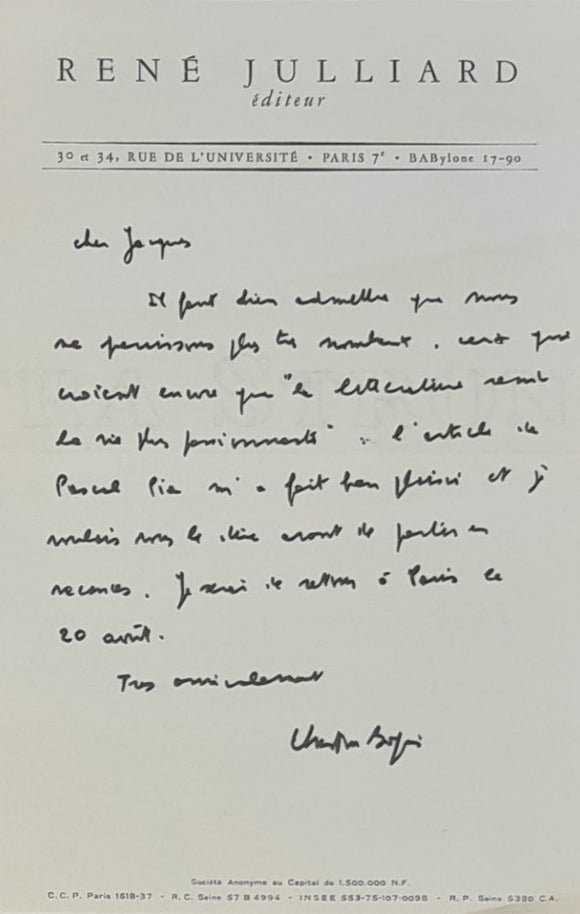 RENÉ JULLIARD
éditeur
30 et 34, RUE DE L'UNIVERSITÉ • PARIS 7e • BABylone 17-90
cher Jacques
Il faut bien admettre que nous
ne fournissons plus très nombreux, ceux qui
croient encore que "la littérature rend
la vie plus passionnante". L'article de
Pascal Pia m'a fait bien plaisir et je
voulais vous le dire avant de partir en
vacances. Je serai de retour à Paris le
20 août.
Très amicalement
Société Anonyme au Capital de 1.500.000 N.F.
C.C.P. Paris 1618-37 - R.C. Seine 57 B 4994 - INSEE 553-75-107-0098 - R.P. Seine 5380 C.A.